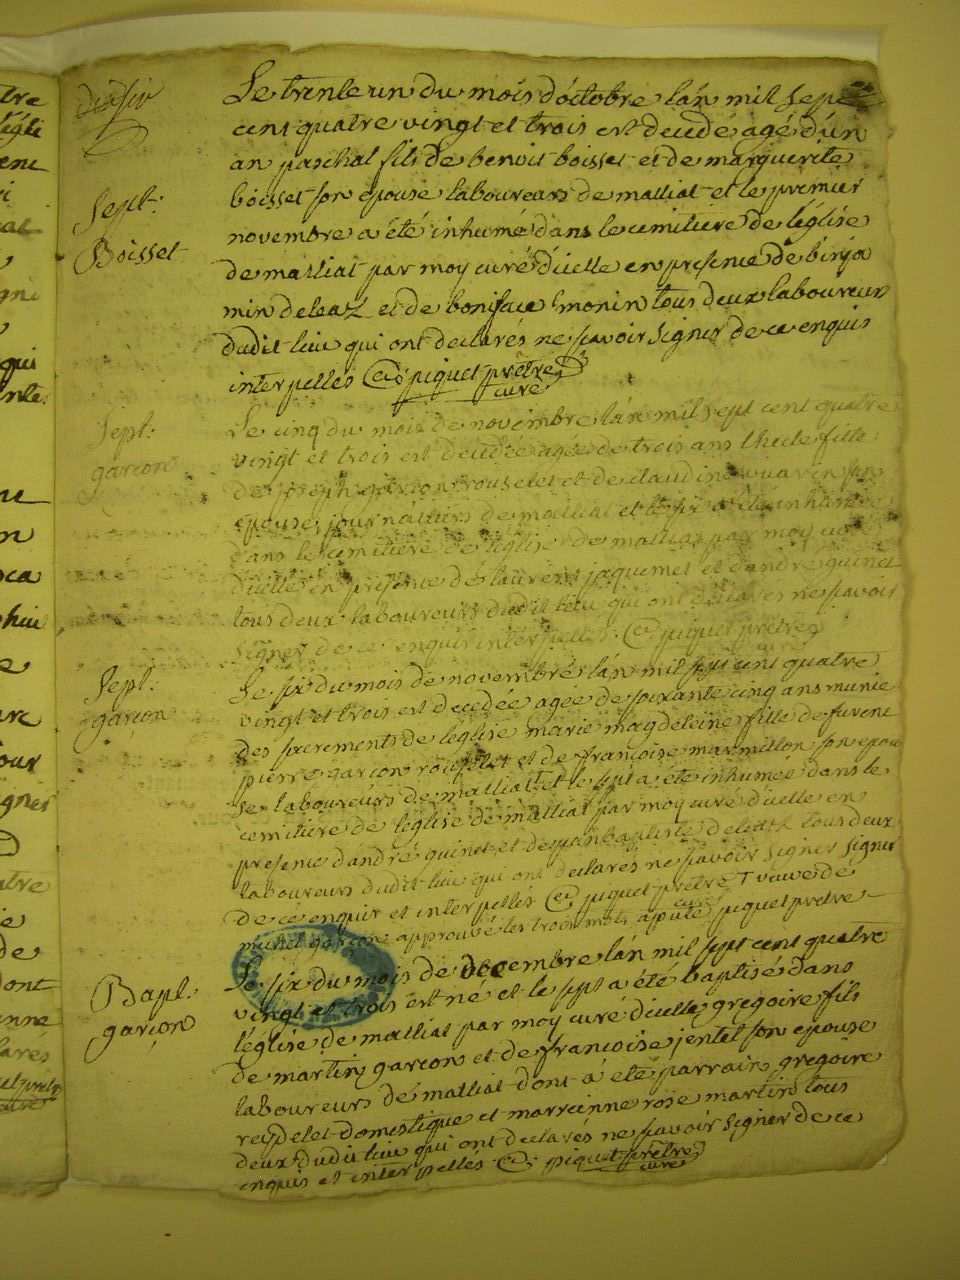 dixsix
Le trente un du mois d'octobre l'an mil sept
cent quatre vingt et trois est decedé agé d'un
an paschal fils de benoit boisset et de marguerite
Sept:
Boisset
boisset son epouse laboureurs de massiat et le premier
novembre a été inhumé dans le cemitiere de l'église
de massiat par moy curé d'icelle en presence de binja
min deleaz et de boniface monin tous deux laboureurs
dudit lieu qui ont declarés ne sçavoir signer de ce enquis
interpellés piquet prêtre
curé
Sept:
garçon
Le cinq du mois de novembre l'an mil sept cent quatre
vingt et trois est decedée agée de trois ans fille
de joseph garçon rousselet et de claudine son
epouse journaliers de massiat et le six a été inhumée
dans le cemitiere de l'église de massiat par moy curé
d'icelle en presence de laurens jaquemet et d'andré quinet
tous deux laboureurs dudit lieu qui ont declarés ne sçavoir
signer de ce enquis interpellés piquet prêtre
Sept:
garçon
Le six du mois de novembre l'an mil sept cent quatre
vingt et trois est decedée agée de soixante cinq ans munie
des sacrements de l'église marie magdeleine fille de furent
pierre garçon rousselet et de françoise marmillon son epou
se laboureurs de massiat et le sept a été inhumée dans le
cemitiere de l'église de massiat par moy curé d'icelle en
presence d'andré quinet et de jean baptiste deleaz tous deux
laboureurs dudit lieu qui ont declarés ne sçavoir signer signer
de ce enquis et interpellés piquet prêtre + veuve de
curé
michel garçon approuvé les trois mots ajouté piquet prêtre
Bapt:
garçon
Le six du mois de decembre l'an mil sept cent quatre
vingt et trois est né et le sept a été baptisé dans
l'église de massiat par moy curé d'icelle gregoire fils
de martin garçon et de françoise jentet son epouse
laboureurs de massiat dont a été parrain gregoire
domestique et marrainne rose martin tous
deux dudit lieu qui ont declarés ne sçavoir signer de ce
enquis et interpellés piquet prêtre
curé